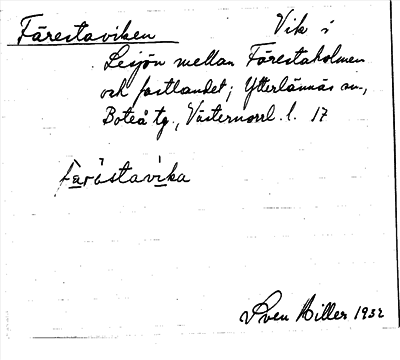 Färestaviken Vik i
Lesjön mellan Färestaholmen
och fastlandet; Ytterlännäs sn.,
Boteå tg., Västernorrl. l. 17
färöstavika
Sven Hiller 1932